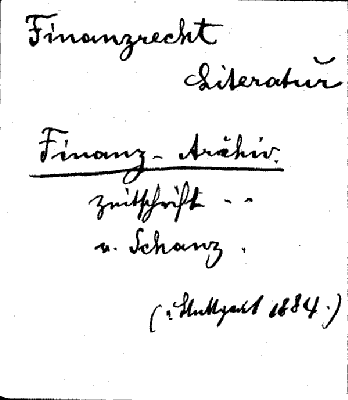 Finanzrecht
Literatur
Finanz-Archiv.
Zeitschrift - -
v. Schanz.
(Stuttgart 1884.)